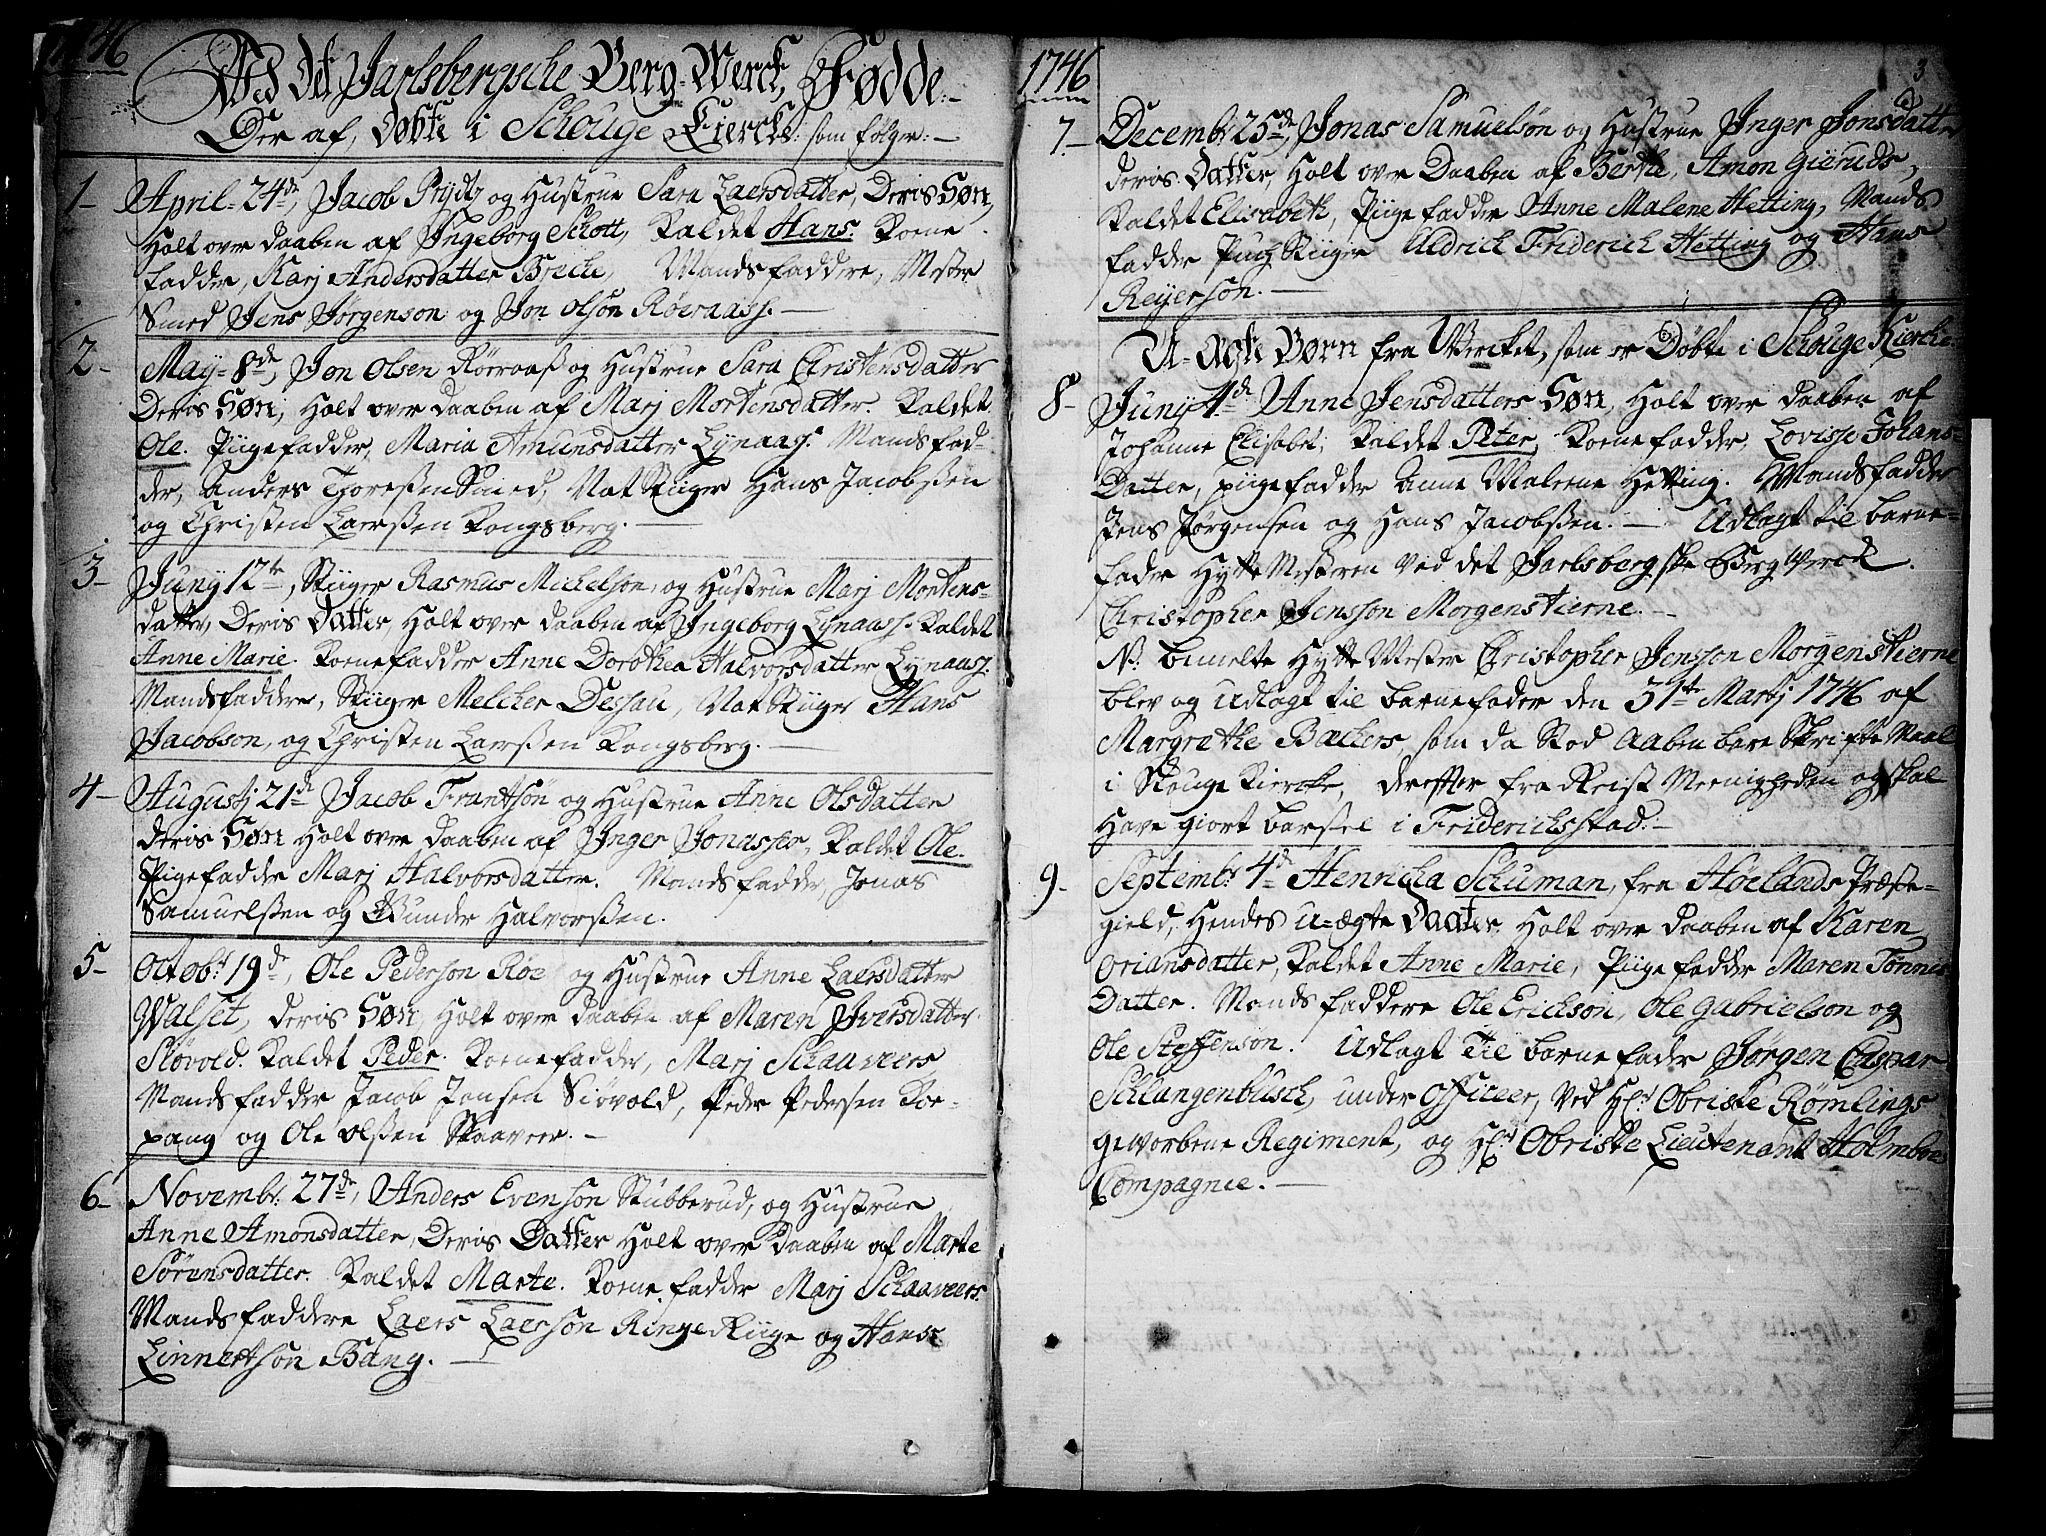 1746
Ved det Jarlsbergsche Berg-Werck, Fødde
Der af, Døbte i Schouge Kiercke: som følger:-
1- April 24de, Jacob Prydtz og Hustrue Sara Laersdatter, Deris Søn,
Holt over daaben af Ingeborg Schott, Kaldet Hans. Kone
fadder, Karj Andersdatter Brech, Mandsfaddere, Mester
Smed Jens Jørgenson og Jon Olson Røeraass.-
2- May 8de, Jon Olsen Røeraas og Hustrue Sara Christensdatter
Deris Søn, Holt over daaben af Marj Mortensdatter. Kaldet
Ole. Piigefadder, Maria Amunsdatter Lynaass. Mandsfad-
der, Anders Thoressen Smed, Natstiiger Hans Jacobssen
og Christen Laerssen Kongsberg.-
3- Juny 12te, Stiiger Rasmus Michelson, og Hustrue Marj Mortens-
datter, Deris Datter, Holt over daaben af Ingeborg Lynaass. Kaldet
Anne Marie. Konefadder Anne Dorothea Halvorsdatter Lynaass.
Mandsfaddere, Stiiger Melcher Dessau, Natstiiger Hans
Jacobson, og Christen Larssen Kongsberg.-
4- Augustj 21de Jacob Frantson og Hustrue Anne Olsdatter
deris Søn Holt over daaben af Inger Jonasses, Kaldet Ole.
Piigefadder Marj Halvorsdatter. Mandsfadder, Jonas
Samuelssen og Gunder Halvorssen.
5- Octobr 19de, Ole Pederson Røe og Hustrue Anne Laersdatter
Walset, deris Søn Holt over daaben af Maren Iversdatter
Siøvold. Kaldet Peder. Konefadder, Marj Schaaveers
Mandsfadder Jacob Jensen Siøvold, Peder Pedersen Koe-
pang og Ole Olssen Skaaveer.-
6- Novembr. 27de, Anders Evenson Stubberud, og Hustrue
Anne Amonsdatter, Deris Datter Holt over Daaben af Marte
Sørensdatter. Kaldet Marte. Konefadder Marj Schaaveers.
Mandsfaddere Laers Laerson Ringe Riige og Hans
Linnertson Bang.-
1746
3
7- Decembr 25de, Jonas Samuelsøn og Hustrue Inger Jonsdatter
deris Datter, Holt over Daaben af Berthe, Amon Gieruds,
Kaldet Elisabeth, Piigefadder Anne Malene Hetting, Mands
fadder Puch Stiiger Uldrich Friderich Hetting og Hans
Reyerson.-
U-Ægte Børn fra Wercket, som er Døbte i Schouge Kierche
8- Juny 4de Anne Jensdatters Søn, Holt over daaben af
Johanne Elisabet, Kaldet Peter, Konefadder, Lovisse Johans-
Datter, piigefadder Anne Malene Hetting. Mandsfadder
Jens Jørgensen og Hans Jacobssen.- Udlagt til barne-
fader Hytte Mesteren ved det Jarlsbergske Berg Werck.
Christopher Jensson Morgenstierne.-
N: bemelte Hytte Mester Christopher Jensson Morgenstierne
blev og udlagt til barnefader den 31te Martj 1746 af
Margrethe Bachers, som da stod aabenbare Skrifte Maal
i Skouge Kiercke, dereffter fra Reist Meenigheden og skal
Have giort barsel i Friderichsstad.-
9- Septembr. 4de Henricha Schuman, fra Høelands Præste-
gield, Hendes U-ægte Daatter Holt over daaben af Karen
Oriansdatter, Kaldet Anne Marie, Piigefadder Maren Tønnis
Datter. Mandsfaddere Ole Erickson, Ole Gabrielson og
Ole Steffenson. Udlagt til barnefader Jørgen Caspar
Schlangenbusch, under Officeer, ved Hr. Obriste Rømlings
geworbene Regiment, og Hr. Obriste Lieutenant Holmboe
Compagnie.-